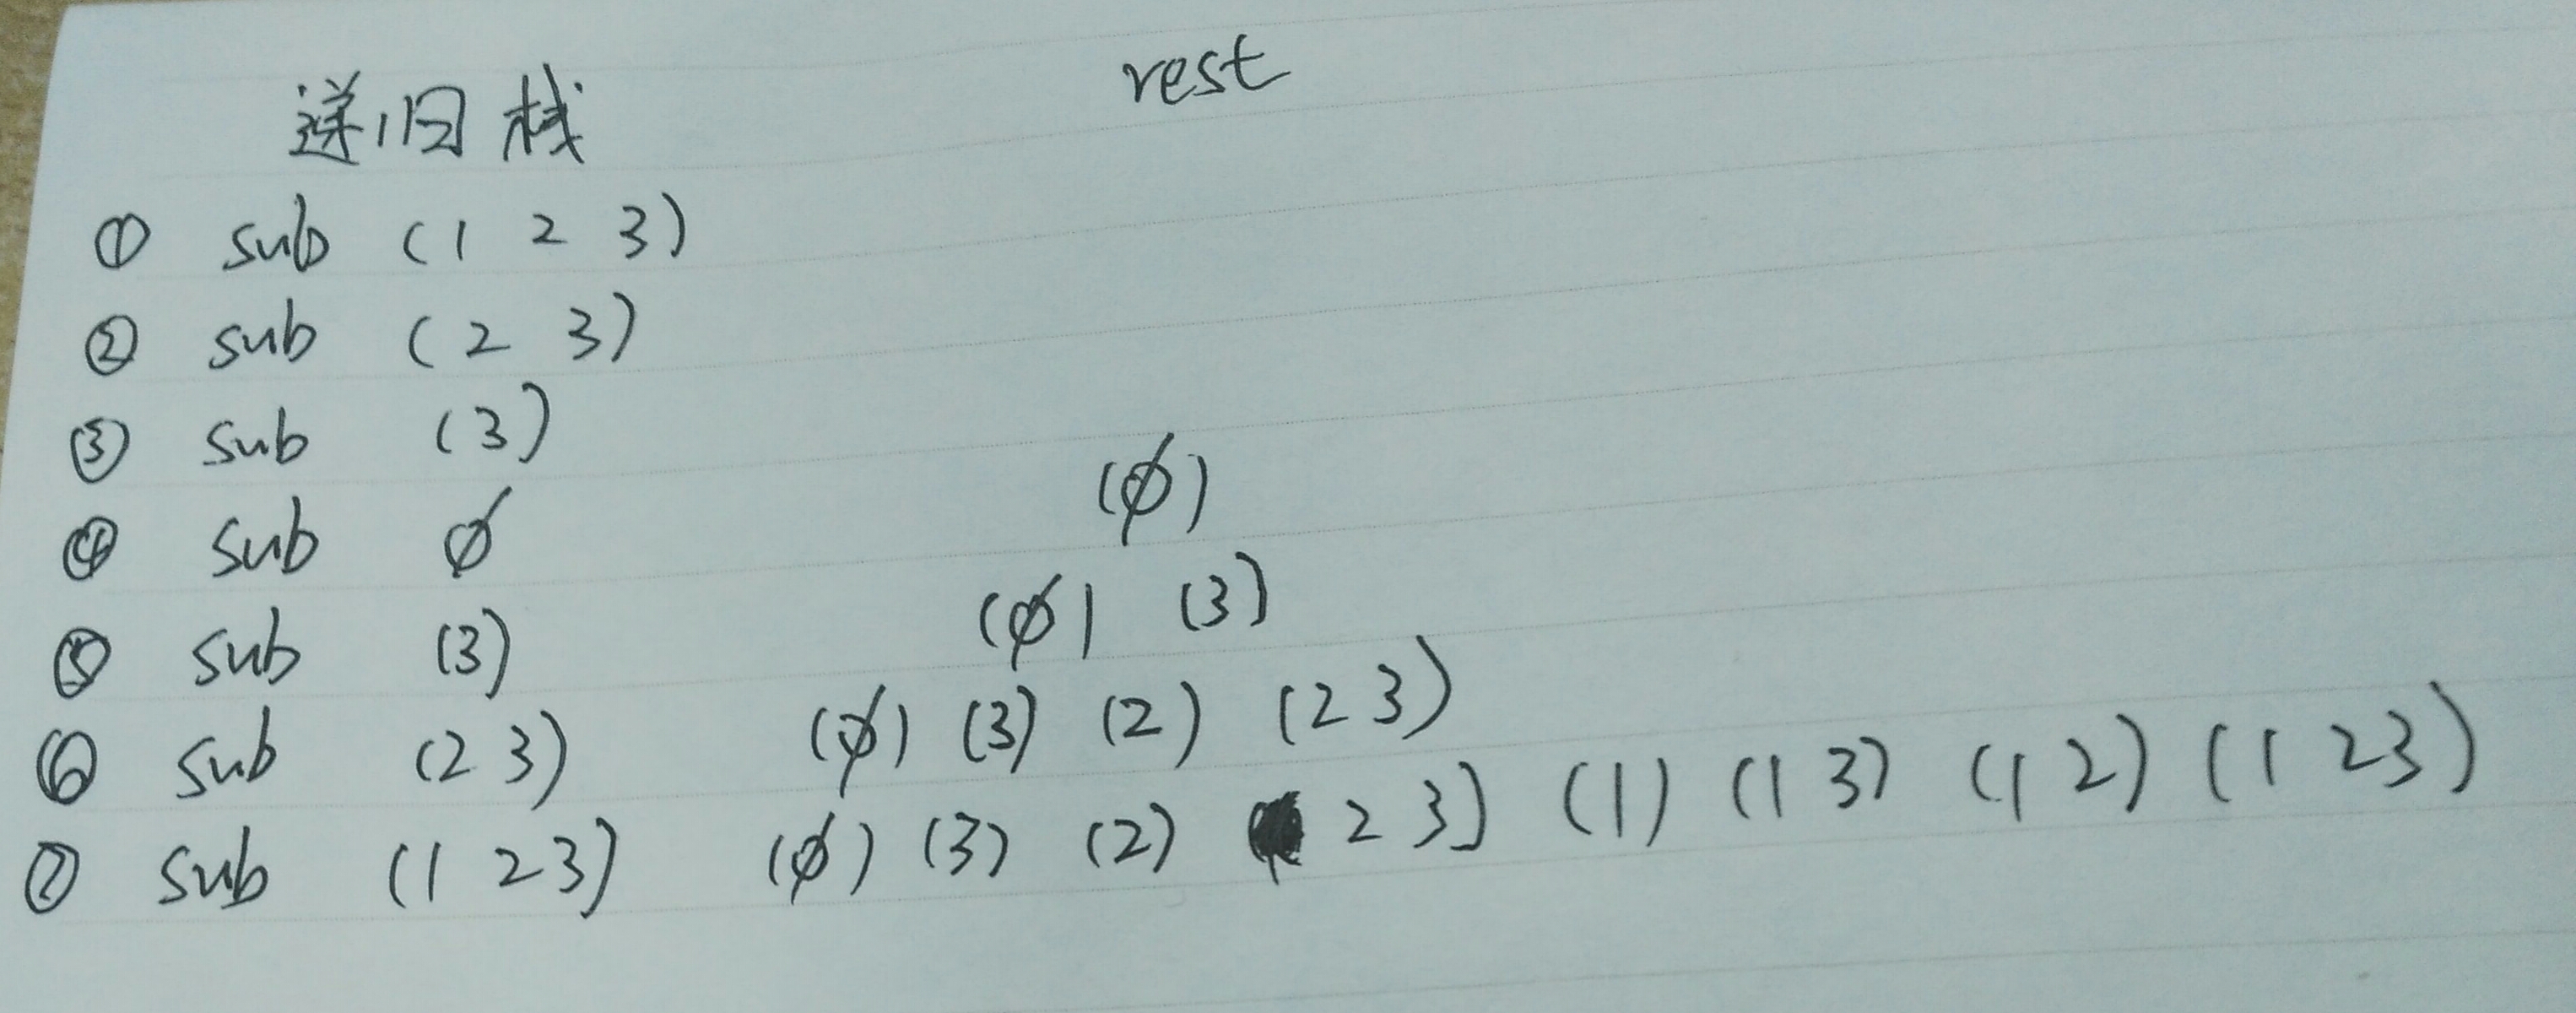 递归栈 rest
① sub (1 2 3)
② sub (2 3)
③ sub (3)
(∅)
④ sub ∅
(∅) (3)
⑤ sub (3)
⑥ sub (2 3) (∅) (3) (2) (2 3)
⑦ sub (1 2 3) (∅) (3) (2) 2 3) (1) (1 3) (1 2) (1 2 3)